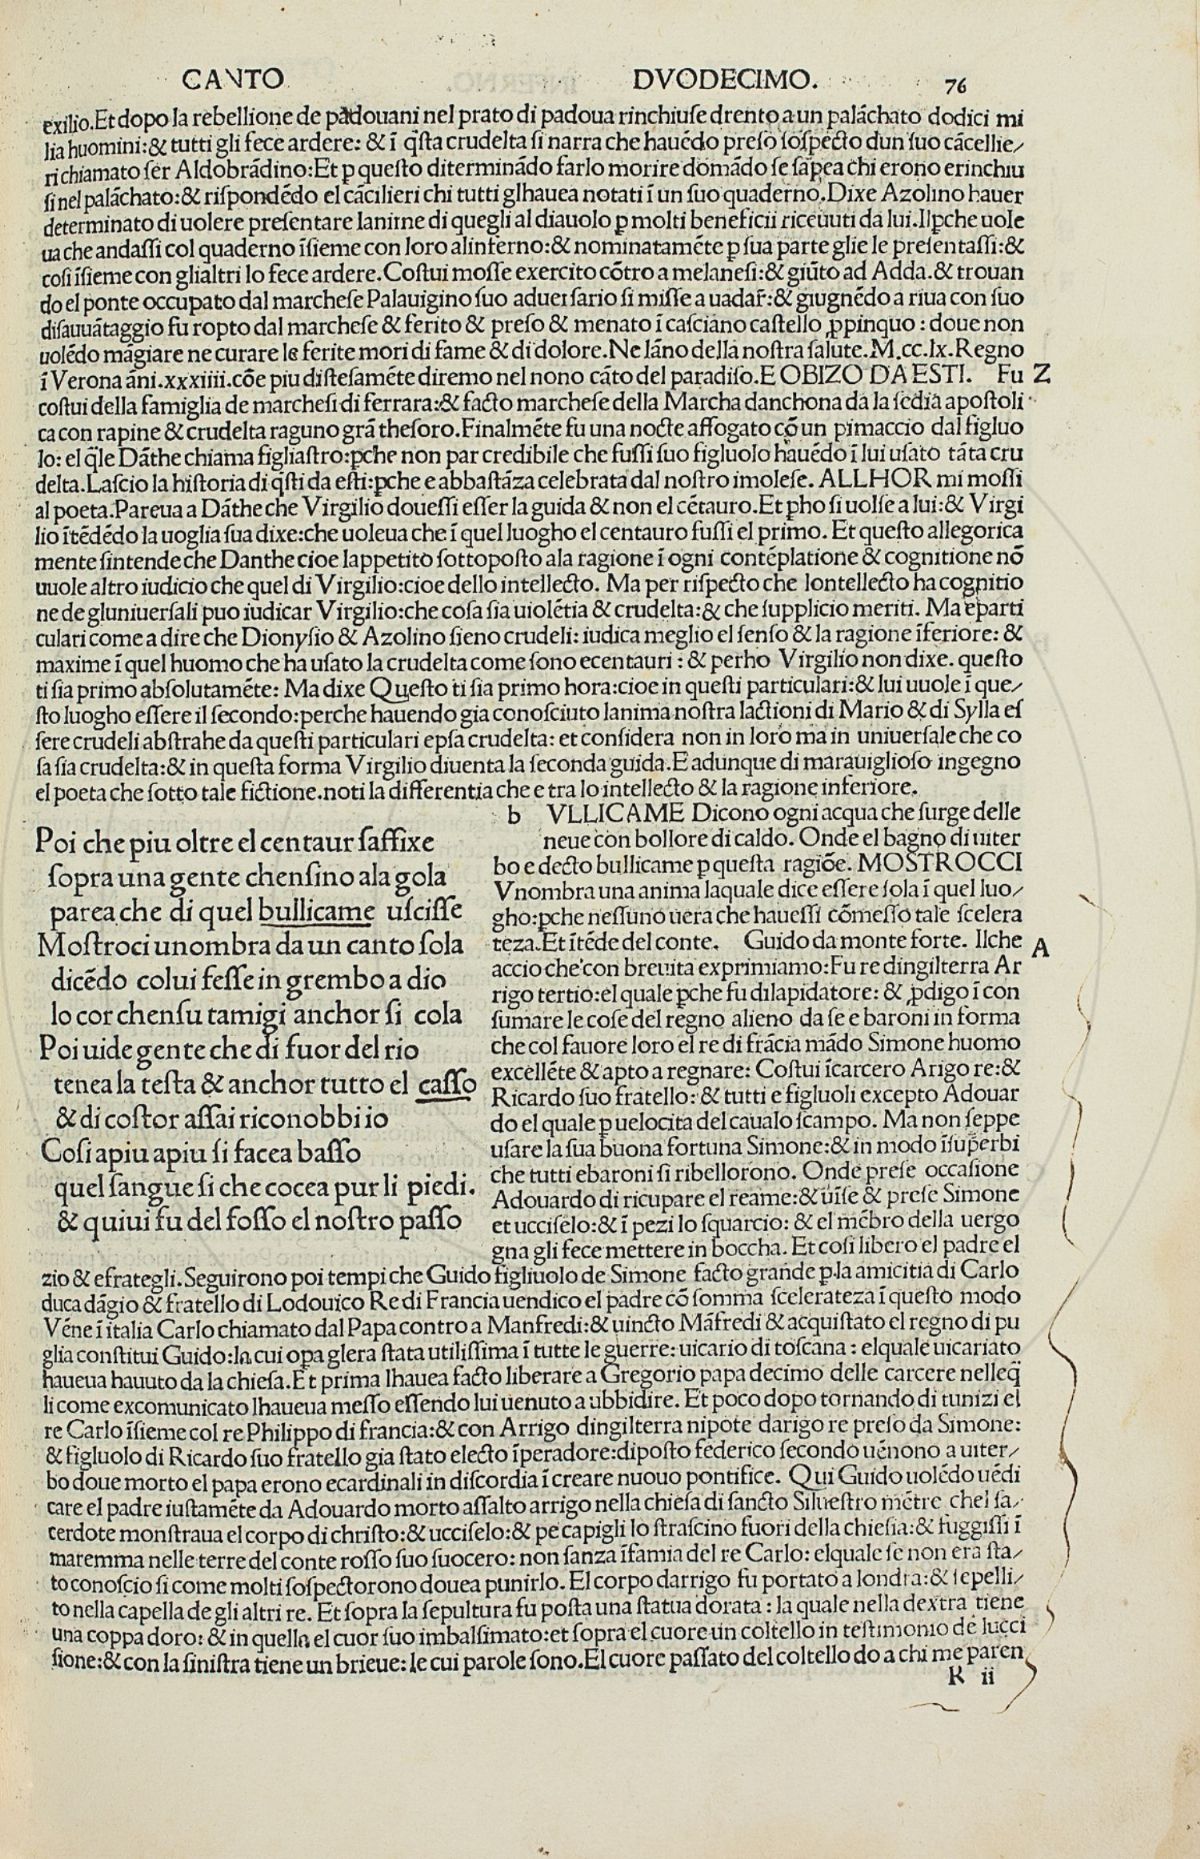 CANTO DVODECIMO. 76
exilio.Et dopo la rebellione de padouani nel prato di padoua rinchiuſe drento a un palãchato dodici mi
lia huomini:& tutti gli fece ardere: & ĩ q̃ſta crudelta ſi narra che hauẽdo preſo ſoſpecto dun ſuo cãcellie/
ri chiamato ſer Aldobrãdino:Et ꝑ queſto diterminãdo farlo morire domãdo ſe ſapea chi erono erinchiu
ſi nel palãchato:& riſpondẽdo el cãcilieri chi tutti glhauea notati ĩ un ſuo quaderno.Dixe Azolino hauer
determinato di uolere preſentare lanime di quegli al diauolo ꝑ molti beneficii riceuuti da lui.Ilꝑche uole
ua che andaſſi col quaderno ĩſieme con loro alinferno:& nominatamẽte ꝑ ſua parte glie le preſentaſſi:&
coſi ĩſieme con glialtri lo fece ardere.Coſtui moſſe exercito cõtro a melaneſi:& giũto ad Adda.& trouan
do el ponte occupato dal marcheſe Palauigino ſuo aduerſario ſi miſſe a uadar̃:& giugnẽdo a riua con ſuo
diſauuãtaggio fu ropto dal marcheſe & ferito & preſo & menato ĩ caſciano caſtello ꝓpinquo : doue non
uolẽdo mãgiare ne curare le ferite mori di fame & di dolore.Ne lãno della noſtra ſalute.M.cc.lx.Regno
ĩ Verona ãni.xxxiiii.cõe piu diſteſamẽte diremo nel nono cãto del paradiſo.E OBIZO DA ESTI. Fu Z
coſtui della famiglia de marcheſi di ferrara:& facto marcheſe della Marcha danchona da la ſedia apoſtoli
ca con rapine & crudelta raguno grã theſoro.Finalmẽte fu una nocte affogato cõ un pimaccio dal figluo
lo: el q̃le Dãthe chiama figliaſtro:ꝑche non par credibile che fuſſi ſuo figluolo hauẽdo ĩ lui uſato tãta cru
delta.Laſcio la hiſtoria di q̃ſti da eſti:ꝑche e abbaſtãza celebrata dal noſtro imoleſe. ALLHOR mi moſſi
al poeta.Pareua a Dãthe che Virgilio doueſſi eſſer la guida & non el cẽtauro.Et ꝑho ſi uolſe a lui:& Virgi
lio ĩtẽdẽdo la uoglia ſua dixe:che uoleua che ĩ quel luogho el centauro fuſſi el primo. Et queſto allegorica
mente ſintende che Danthe cioe lappetito ſottopoſto ala ragione ĩ ogni contẽplatione & cognitione nõ
uuole altro iudicio che quel di Virgilio:cioe dello intellecto. Ma per riſpecto che lontellecto ha cognitio
ne de gluniuerſali puo iudicar Virgilio:che coſa ſia uiolẽtia & crudelta:& che ſupplicio meriti. Ma eparti
culari come a dire che Dionyſio & Azolino ſieno crudeli: iudica meglio el ſenſo & la ragione ĩferiore: &
maxime ĩ quel huomo che ha uſato la crudelta come ſono ecentauri : & perho Virgilio non dixe. queſto
ti ſia primo abſolutamẽte: Ma dixe Queſto ti ſia primo hora:cioe in queſti particulari:& lui uuole ĩ que/
ſto luogho eſſere il ſecondo:perche hauendo gia conoſciuto lanima noſtra lactioni di Mario & di Sylla eſ
ſere crudeli abſtrahe da queſti particulari epſa crudelta: et conſidera non in loro ma in uniuerſale che co
ſa ſia crudelta:& in queſta forma Virgilio diuenta la ſeconda guida.E adunque di marauiglioſo ingegno
el poeta che ſotto tale fictione.noti la differentia che e tra lo intellecto & la ragione inferiore.
Poi che piu oltre el centaur ſaffixe
ſopra una gente chenſino ala gola
parea che di quel bullicame uſciſſe
Moſtroci unombra da un canto ſola
dicẽdo colui feſſe in grembo a dio
lo cor chenſu tamigi anchor ſi cola
Poi uide gente che di fuor del rio
tenea la teſta & anchor tutto el caſſo
& di coſtor aſſai riconobbi io
Coſi apiu apiu ſi facea baſſo
quel ſangue ſi che cocea pur li piedi.
& quiui fu del foſſo el noſtro paſſo
b VLLICAME Dicono ogni acqua che ſurge delle
neue con bollore di caldo. Onde el bagno di uiter
bo e decto bullicame ꝑ queſta ragiõe. MOSTROCCI
Vnombra una anima laquale dice eſſere ſola ĩ quel luo/
gho:ꝑche neſſuno uera che haueſſi cõmeſſo tale ſcelera
teza.Et ĩtẽde del conte. Guido da monte forte. Ilche A
accio che con breuita exprimiamo:Fu re dingilterra Ar
rigo tertio:el quale ꝑche fu dilapidatore: & ꝓdigo ĩ con
ſumare le coſe del regno alieno da ſe e baroni in forma
che col fauore loro el re di frãcia mãdo Simone huomo
excellẽte & apto a regnare: Coſtui ĩcarcero Arigo re:&
Ricardo ſuo fratello: & tutti e figluoli excepto Adouar
do el quale ꝑ uelocita del caualo ſcampo. Ma non ſeppe
uſare la ſua buona fortuna Simone:& in modo ĩſuperbi
che tutti ebaroni ſi ribellorono. Onde preſe occaſione
Adouardo di ricupare el reame:& uĩſe & preſe Simone
et ucciſelo:& ĩ pezi lo ſquarcio: & el mẽbro della uergo
gna gli fece mettere in boccha. Et coſi libero el padre el
zio & efrategli.Seguirono poi tempi che Guido figliuolo de Simone facto grande ꝑ la amicitia di Carlo
duca dãgio & fratello di Lodouico Re di Francia uendico el padre cõ ſomma ſcelerateza ĩ queſto modo
Vẽne ĩ italia Carlo chiamato dal Papa contro a Manfredi:& uincto Mãfredi & acquiſtato el regno di pu
glia conſtitui Guido:la cui opa glera ſtata utiliſſima ĩ tutte le guerre: uicario di toſcana : elquale uicariato
haueua hauuto da la chieſa.Et prima lhauea facto liberare a Gregorio papa decimo delle carcere nelleq̃
li come excomunicato lhaueua meſſo eſſendo lui uenuto a ubbidire. Et poco dopo tornando di tunizi el
re Carlo ĩſieme col re Philippo di francia:& con Arrigo dingilterra nipote darigo re preſo da Simone:
& figluolo di Ricardo ſuo fratello gia ſtato electo ĩperadore:dipoſto federico ſecondo uẽnono a uiter/
bo doue morto el papa erono ecardinali in diſcordia ĩ creare nuouo pontifice. Qui Guido uolẽdo uẽdi
care el padre iuſtamẽte da Adouardo morto aſſalto arrigo nella chieſa di ſancto Silueſtro mẽtre chel ſa/
cerdote monſtraua el corpo di chriſto:& ucciſelo:& pe capigli lo ſtraſcino fuori della chieſia:& fuggiſſi ĩ
maremma nelle terre del conte roſſo ſuo ſuocero: non ſanza ĩfamia del re Carlo: elquale ſe non era ſta/
to conoſcio ſi come molti ſoſpectorono douea punirlo. El corpo darrigo fu portato a londra:& ſepelli/
to nella capella de gli altri re. Et ſopra la ſepultura fu poſta una ſtatua dorata : la quale nella dextra tiene
una coppa doro: & in quella el cuor ſuo imbalſimato:et ſopra el cuore un coltello in teſtimonio de lucci
ſione:& con la ſiniſtra tiene un brieue: le cui parole ſono.El cuore paſſato del coltello do a chi me paren
K ii